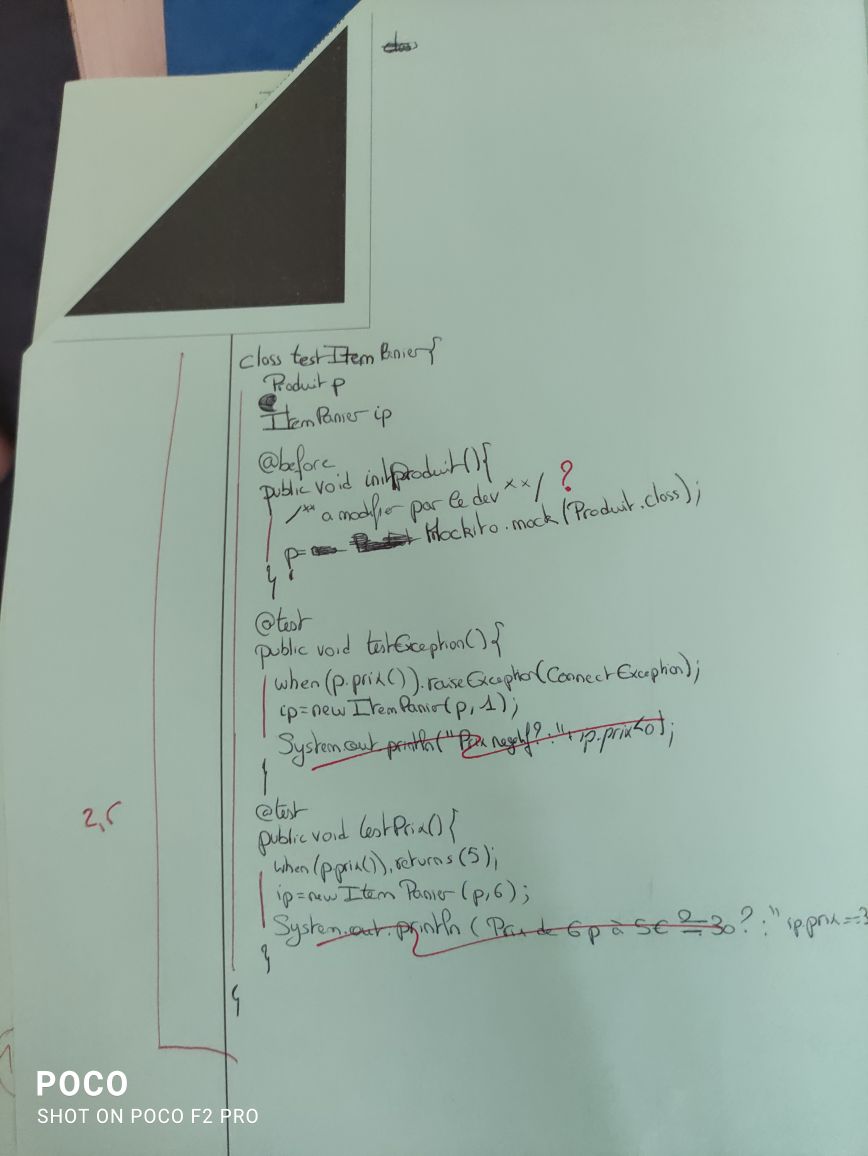 class
class testItemPanier{
Produit p
ItemPanier ip
@before
public void initproduit(){
/** a modifier par le dev **/ ?
p= Mockito.mock(Produit.class);
}
@test
public void testException(){
when(p.prix()).raiseException(ConnectException);
ip=new ItemPanier(p,1);
System.out.println("Prix negatif?:"+ip.prix<0);
}
2,5
@test
public void testPrix(){
when(p.prix()).returns(5);
ip=new Item Panier (p,6);
System.out.println (Prix de 6p à 5€ ?= 30?:" ip.prix==3
}
}
POCO
SHOT ON POCO F2 PRO